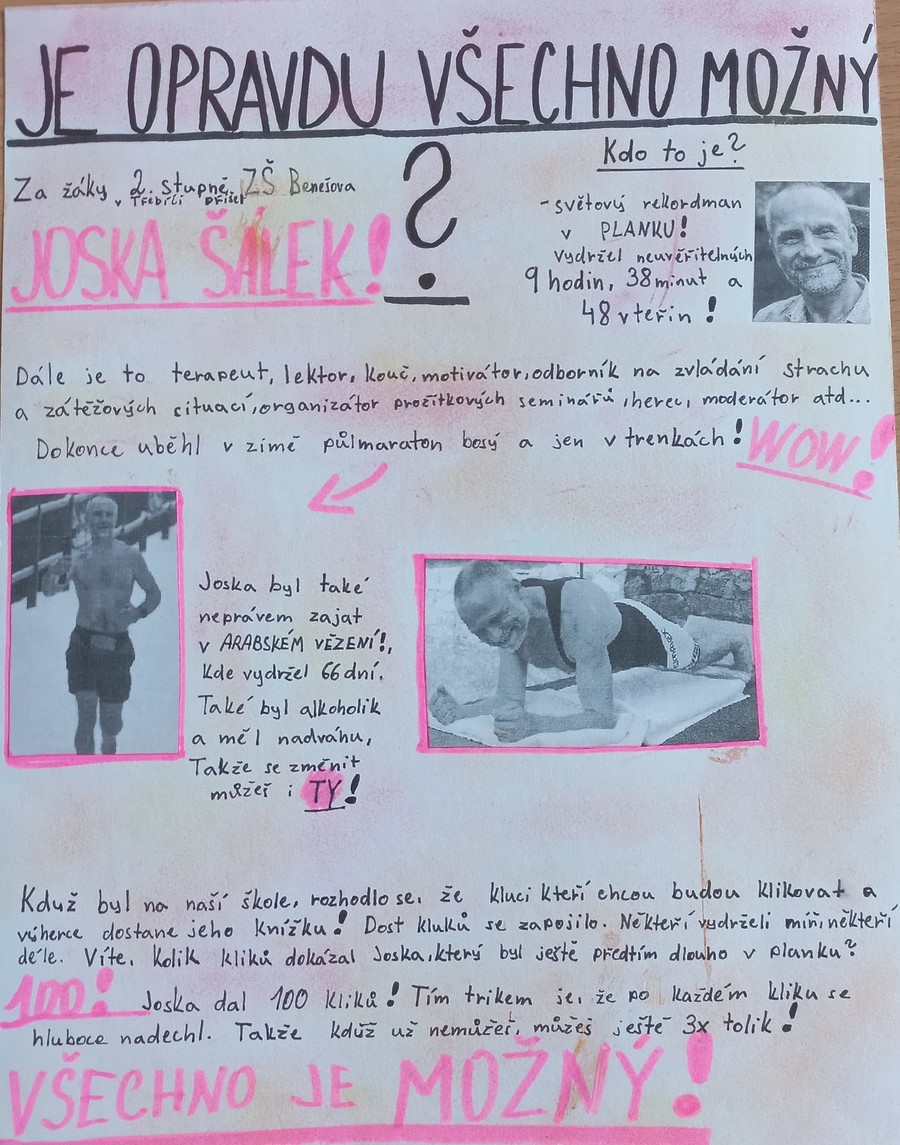 JE OPRAVDU VŠECHNO MOŽNÝ
?
Za žáky 2. stupně ZŠ Benešova
v Třebíči přišel
JOSKA ŠÁLEK!
Kdo to je?
-světový rekordman
v PLANKU!
Vydržel neuvěřitelných
9 hodin, 38 minut a
48 vteřin!
Dále je to terapeut, lektor, kouč, motivátor, odborník na zvládání strachu
a zátěžových situací, organizátor prožitkových seminářů, herec, moderátor atd...
Dokonce uběhl v zimě půlmaraton bosý a jen v trenkách! WOW!
Joska byl také
neprávem zajat
v ARABSKÉM VĚZENÍ!,
kde vydržel 66 dní.
Také byl alkoholik
a měl nadváhu,
Takže se změnit
můžeš i TY!
Když byl na naší škole, rozhodlo se, že kluci kteří chcou budou klikovat a
výherce dostane jeho knížku! Dost kluků se zapojilo. Někteří vydrželi míň, někteří
déle. Víte, kolik kliků dokázal Joska, který byl ještě předtím dlouho v planku?
100! Joska dal 100 kliků! Tím trikem je, že po každém kliku se
hluboce nadechl. Takže když už nemůžeš, můžeš ještě 3x tolik!
VŠECHNO JE MOŽNÝ!